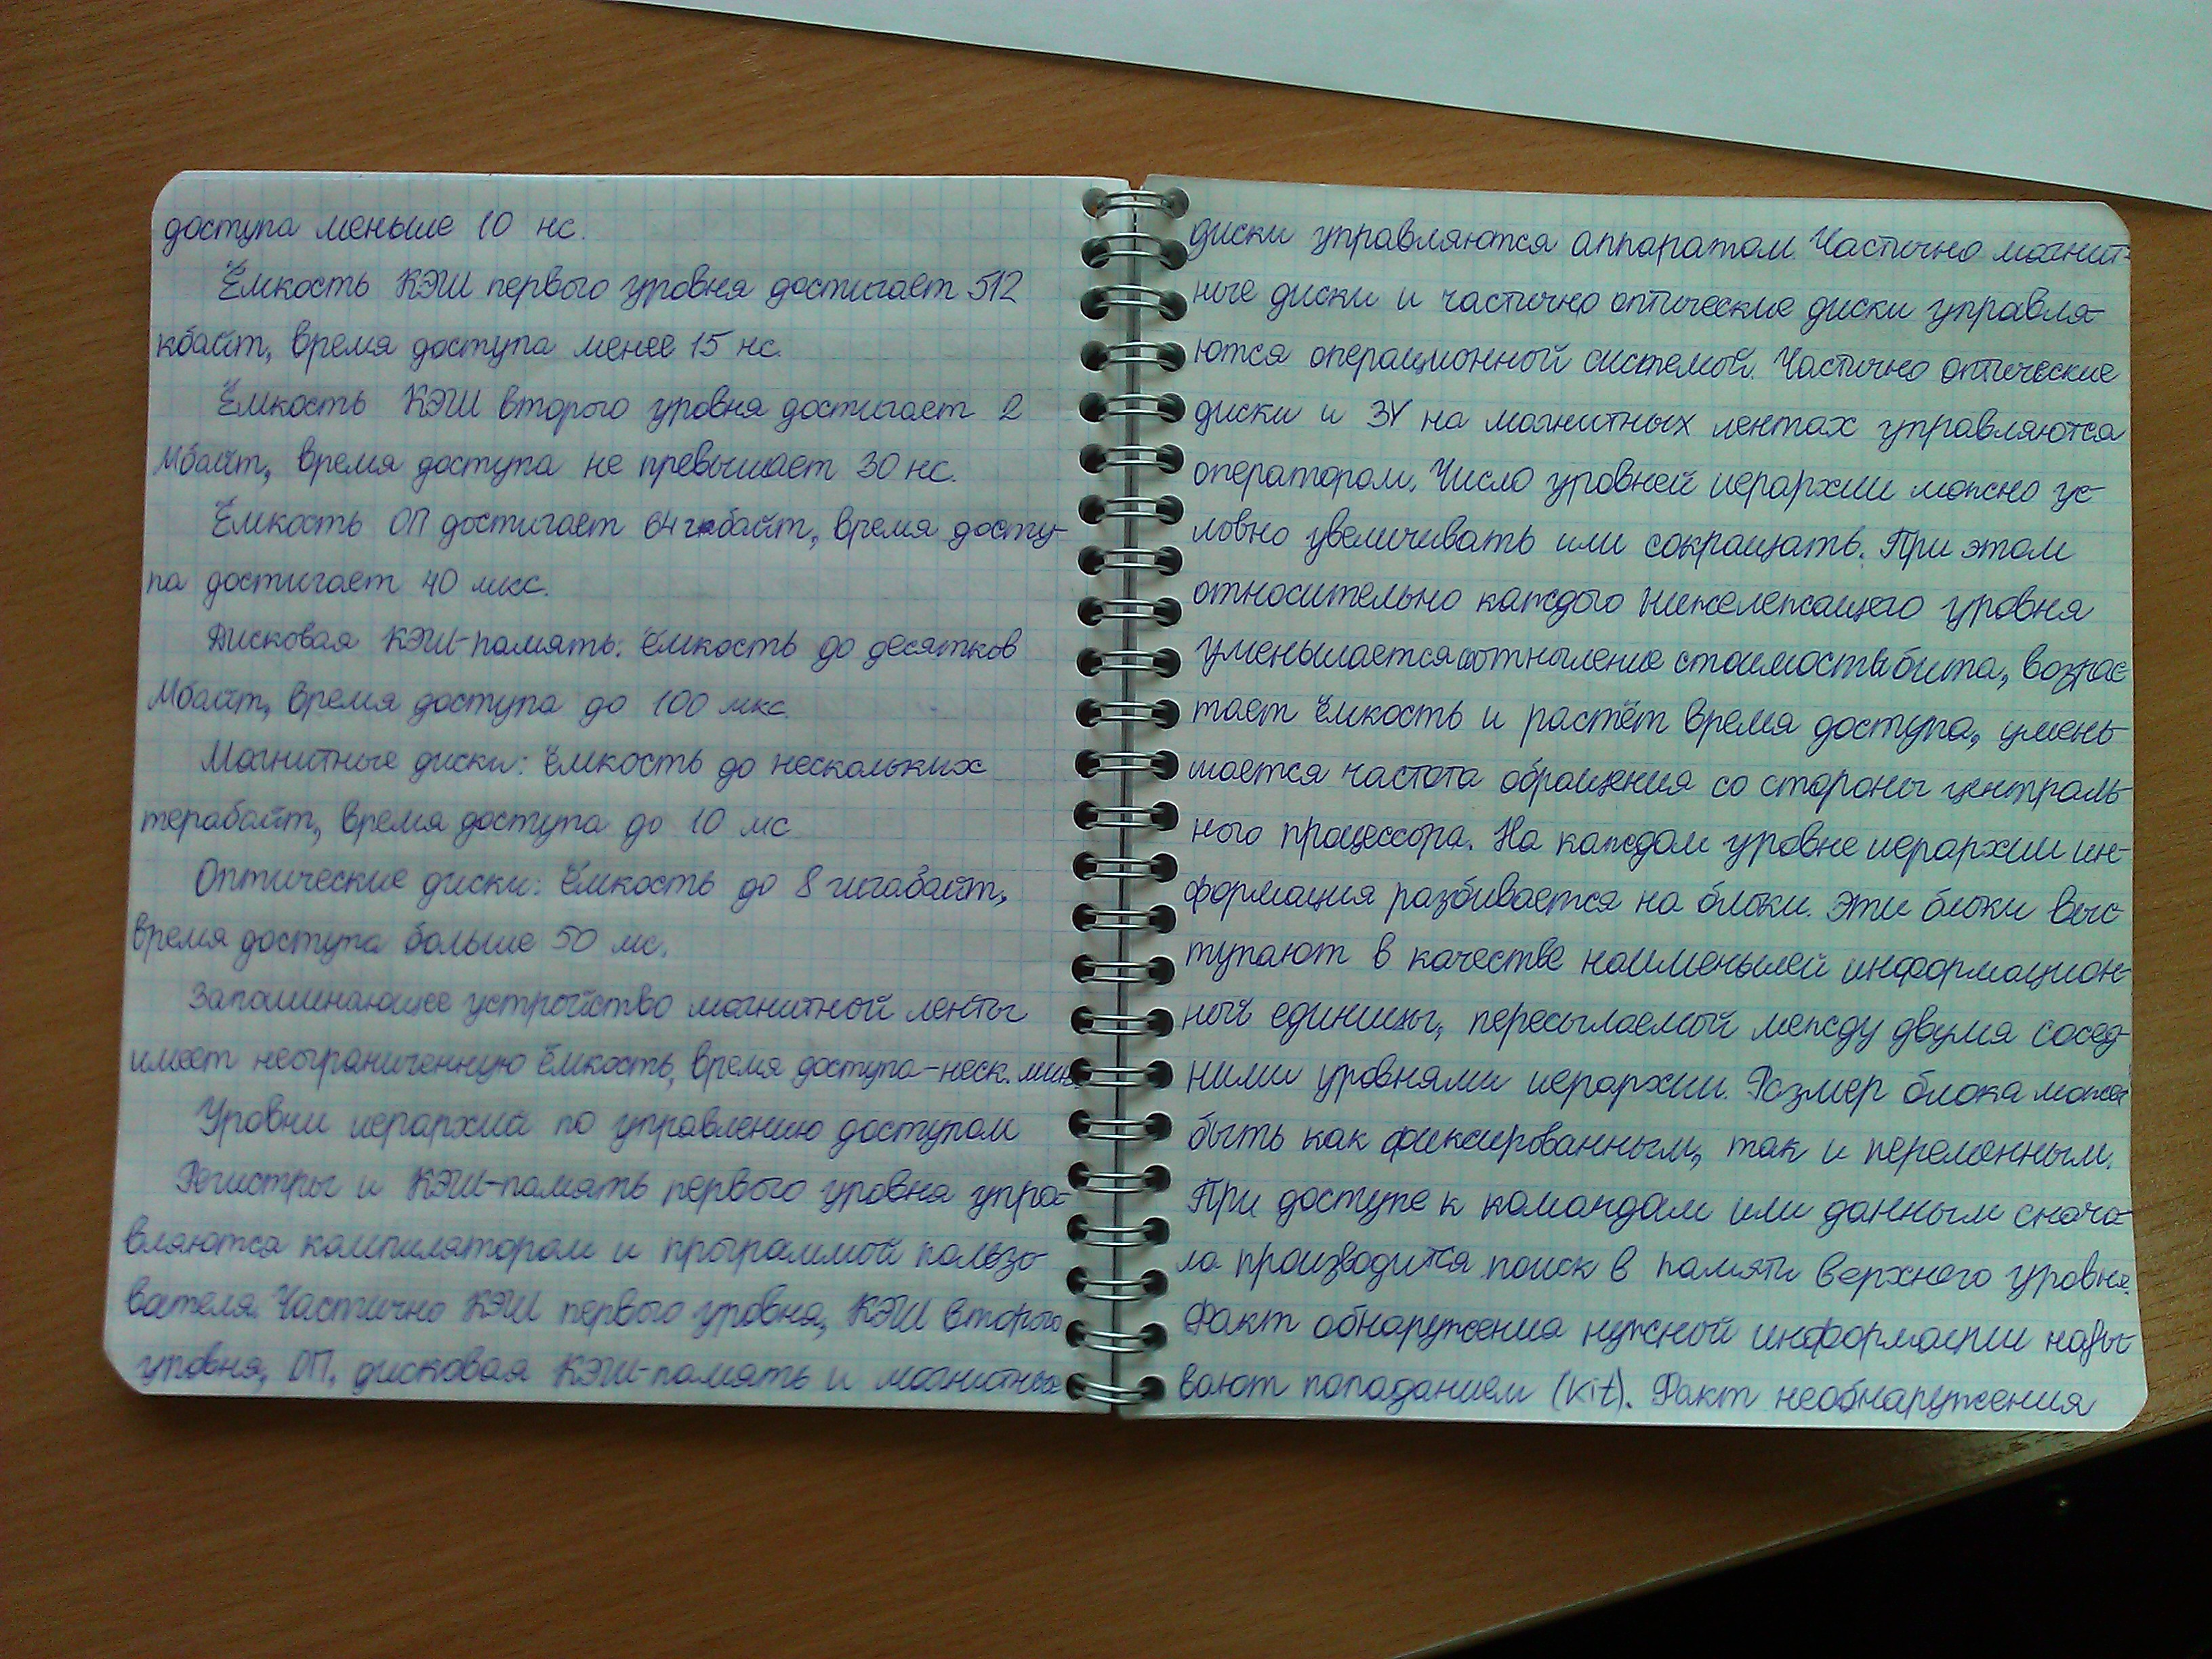 доступа меньше 10 нс.
Ёмкость КЭШ первого уровня достигает 512
кбайт, время доступа менее 15 нс.
Ёмкость КЭШ второго уровня достигает 2
Мбайт, время доступа не превышает 30 нс.
Ёмкость ОП достигает 64 гбайт, время досту-
па достигает 40 мкс.
Дисковая КЭШ-память: ёмкость до десятков
Мбайт, время доступа до 100 мкс.
Магнитные диски: ёмкость до нескольких
терабайт, время доступа до 10 мс
Оптические диски: ёмкость до 8 гигабайт,
время доступа больше 50 мс.
Запоминающее устройство магнитной ленты
имеет неограниченную ёмкость, время доступа-неск. мин.
Уровни иерархий по управлению доступом
Регистры и КЭШ-память первого уровня упра-
вляются компилятором и программой пользо-
вателя. Частично КЭШ первого уровня, КЭШ второго
уровня, ОП, дисковая КЭШ-память и магнитные
диски управляются аппаратом. Частично магнит-
ные диски и частично оптические диски управля-
ются операционной системой. Частично оптические
диски и ЗУ на магнитных лентах управляются
оператором. Число уровней иерархии можно ус-
ловно увеличивать или сокращать. При этом
относительно каждого нижележащего уровня
уменьшается стоимость бита, возрас-
тает ёмкость и растёт время доступа, умень-
шается частота обращения со стороны централь-
ного процессора. На каждом уровне иерархии ин-
формация разбивается на блоки. Эти блоки выс-
тупают в качестве наименьшей информацион-
ной единицы, пересылаемой между двумя сосед-
ними уровнями иерархии. Размер блока может
быть как фиксированным, так и переменным.
При доступе к командам или данным снача-
ла производится поиск в памяти верхнего уровня.
Факт обнаружения нужной информации назы-
вают попаданием (kit). Факт необнаружения